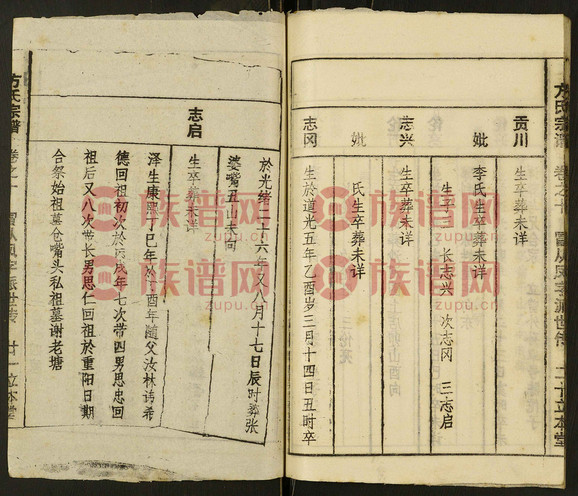 方氏宗谱
贡川
生卒葬未详
妣
李氏生卒葬未详
生子三 长志兴 次志冈 三志启
志兴
生卒葬未详
妣
氏生卒葬未详
志冈
生於道光五年乙酉岁三月十四日丑时卒
二十 立本堂
於光绪二十六年又八月十七日辰时葬张
婆嘴五山未向
志启
生卒葬未详
泽生康熙丁巳年於酉年随父汝林讳希
德回祖初次於戌年七次带四男思忠回
祖后又八次带长男思仁回祖於重阳日期
合祭始祖墓仓嘴头私祖墓谢老塘
方氏宗谱
卷之一
廿一 立本堂
族谱网
zupu.cn